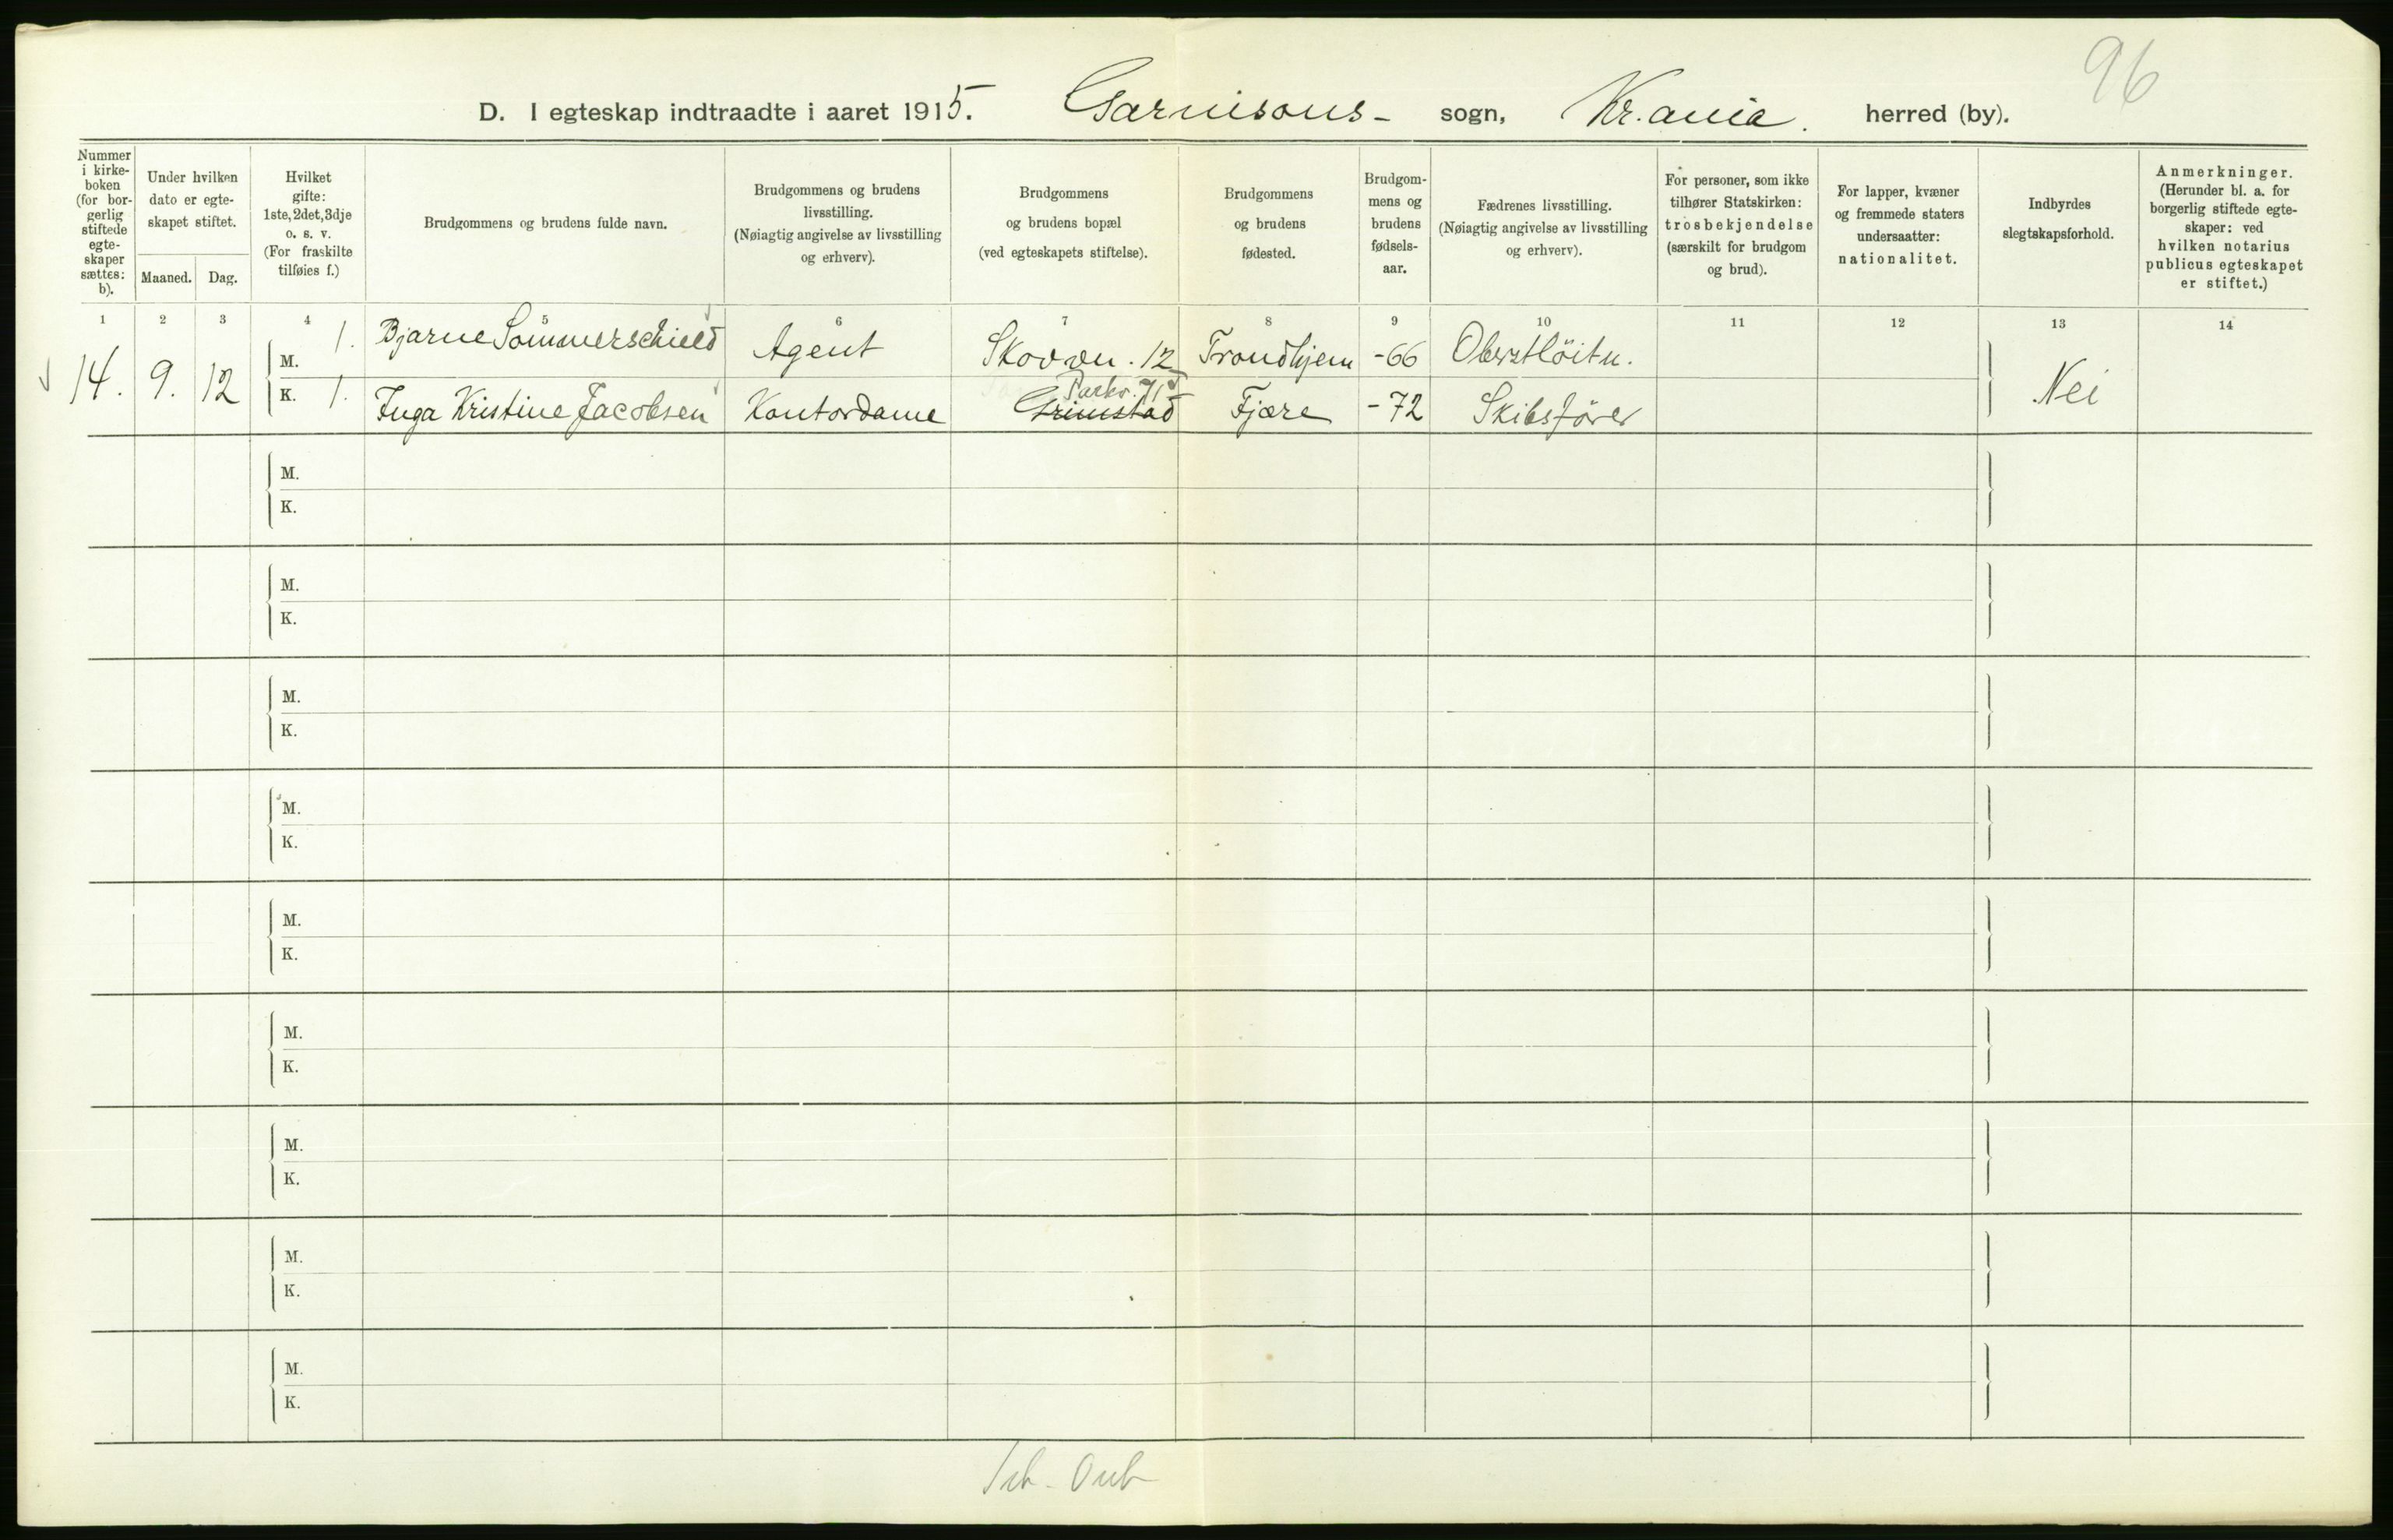 96
D. I egteskap indtraadte i aaret 1915. Garnisons- sogn, Kr.ania. herred (by).
Nummer i kirke-boken (for bor-gerlig stiftede egte-skaper sættes: b).
Under hvilken dato er egte-skapet stiftet.
Maaned. Dag.
Hvilket gifte: 1ste, 2det, 3dje o. s. v. (For fraskilte tilføies f.)
Brudgommens og brudens fulde navn.
Brudgommens og brudens livsstilling. (Nøiagtig angivelse av livsstilling og erhverv).
Brudgommens og brudens bopæl (ved egteskapets stiftelse).
Brudgommens og brudens fødested.
Brudgom-mens og brudens fødsels-aar.
Fædrenes livsstilling. (Nøiagtig angivelse av livsstilling og erhverv).
For personer, som ikke tilhører Statskirken: trosbekjendelse (særskilt for brudgom og brud).
For lapper, kvæner og fremmede staters undersaatter: nationalitet.
Indbyrdes slegtskapsforhold.
Anmerkninger. (Herunder bl. a. for borgerlig stiftede egte-skaper: ved hvilken notarius publicus egteskapet er stiftet.)
1 2 3 4 5 6 7 8 9 10 11 12 13 14
14. 9. 12
M. 1. Bjarne Sommerschield Agent Skovvn. 12 Trondhjem -66 Oberstlöitn.
Nei
Parkv. 71
K. 1. Inga Kristine Jacobsen Kontordame Grimstad Fjære -72 Skibsförer
M.
K.
M.
K.
M.
K.
M.
K.
M.
K.
M.
K.
M.
K.
M.
K.
M.
K.